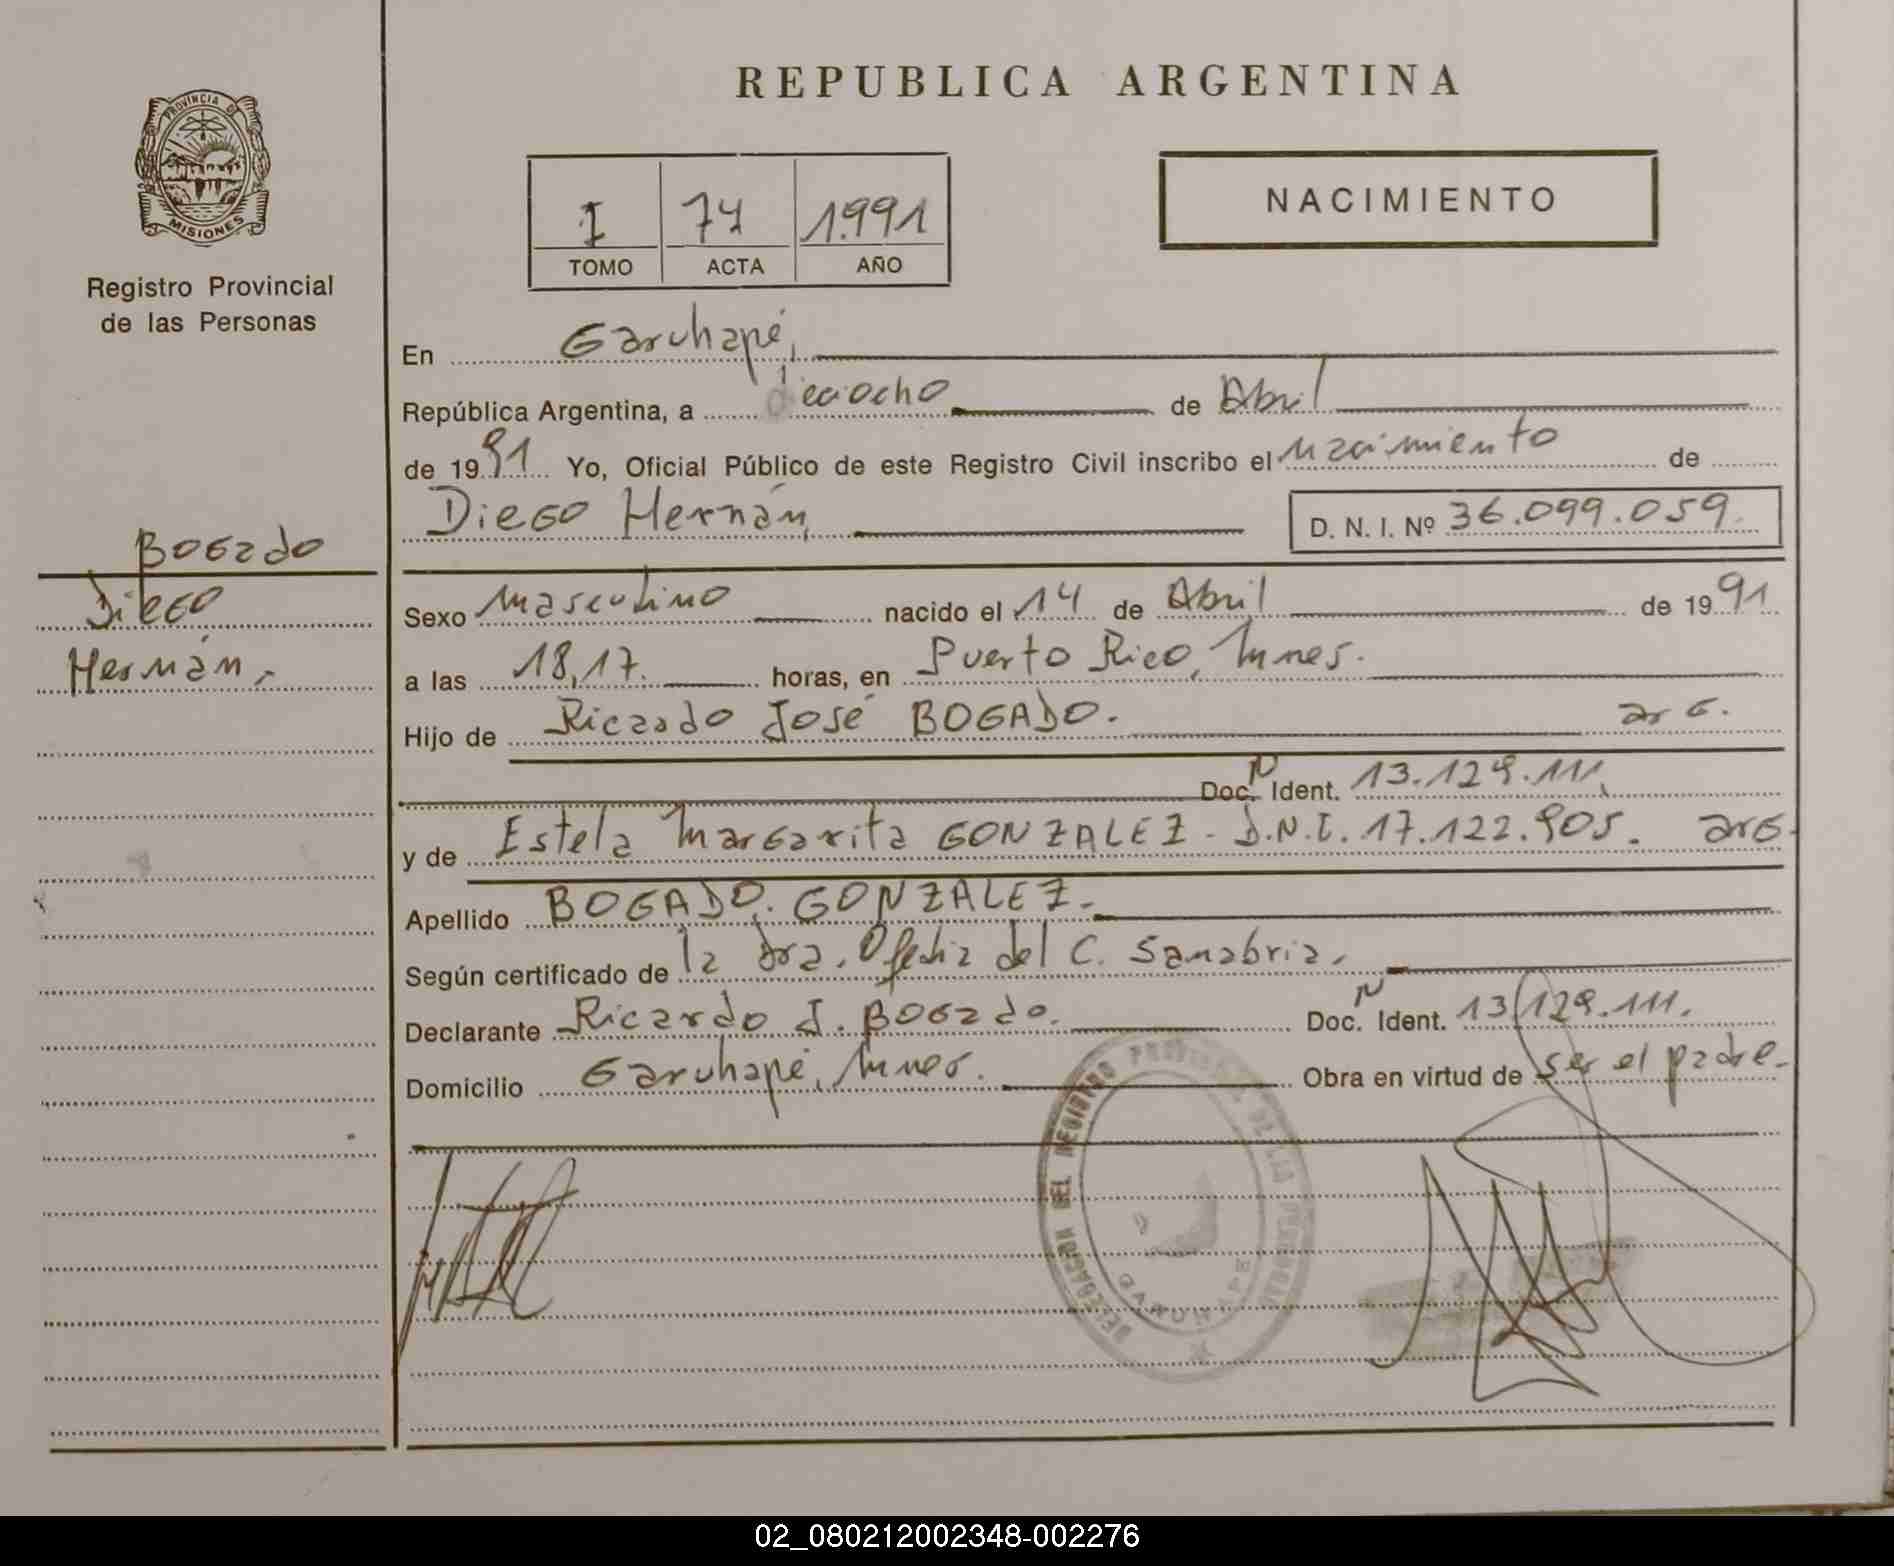 REPUBLICA ARGENTINA
PROVINCIA DE
MISIONES
Registro Provincial
de las Personas
NACIMIENTO
I 74 1.991
TOMO ACTA AÑO
En Garuhapé,
República Argentina, a dieciocho de Abril
de 1991 Yo, Oficial Público de este Registro Civil inscribo el nacimiento de
Diego Hernán, D. N. I. Nº 36.099.059.
Bogado
Diego
Hernán.
Sexo masculino nacido el 14 de Abril de 1991
a las 18,17. horas, en Puerto Rico, Mnes.
Hijo de Ricardo José BOGADO. arg.
Doc. N Ident. 13.129.111,
y de Estela Margarita GONZALEZ - D.N.I. 17.122.905. arg.
Apellido BOGADO. GONZALEZ.
Según certificado de la Dra. del C. Sanabria.
Declarante Ricardo J. Bogado. Doc. N Ident. 13.129.111.
Domicilio Garuhapé, Mnes. Obra en virtud de ser el padre.
DELEGACION DEL REGISTRO PROVINCIAL DE LAS PERSONAS
GARUHAPE
02_080212002348-002276